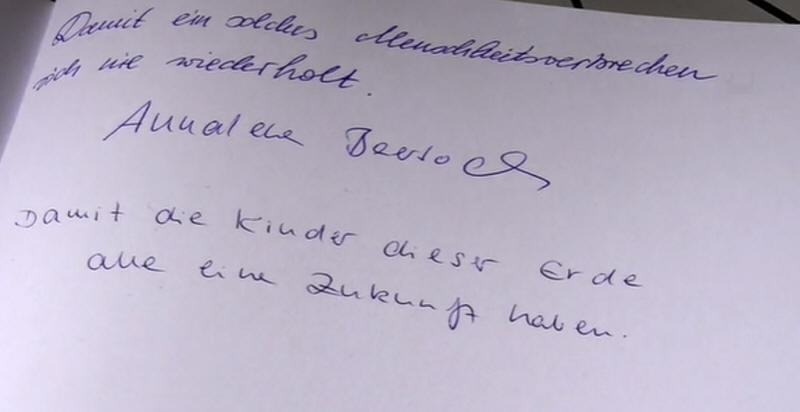 Damit ein solches Menschheitsverbrechen
sich nie wiederholt.
Annalena Baerbock
Damit die Kinder dieser Erde
alle eine Zukunft haben.